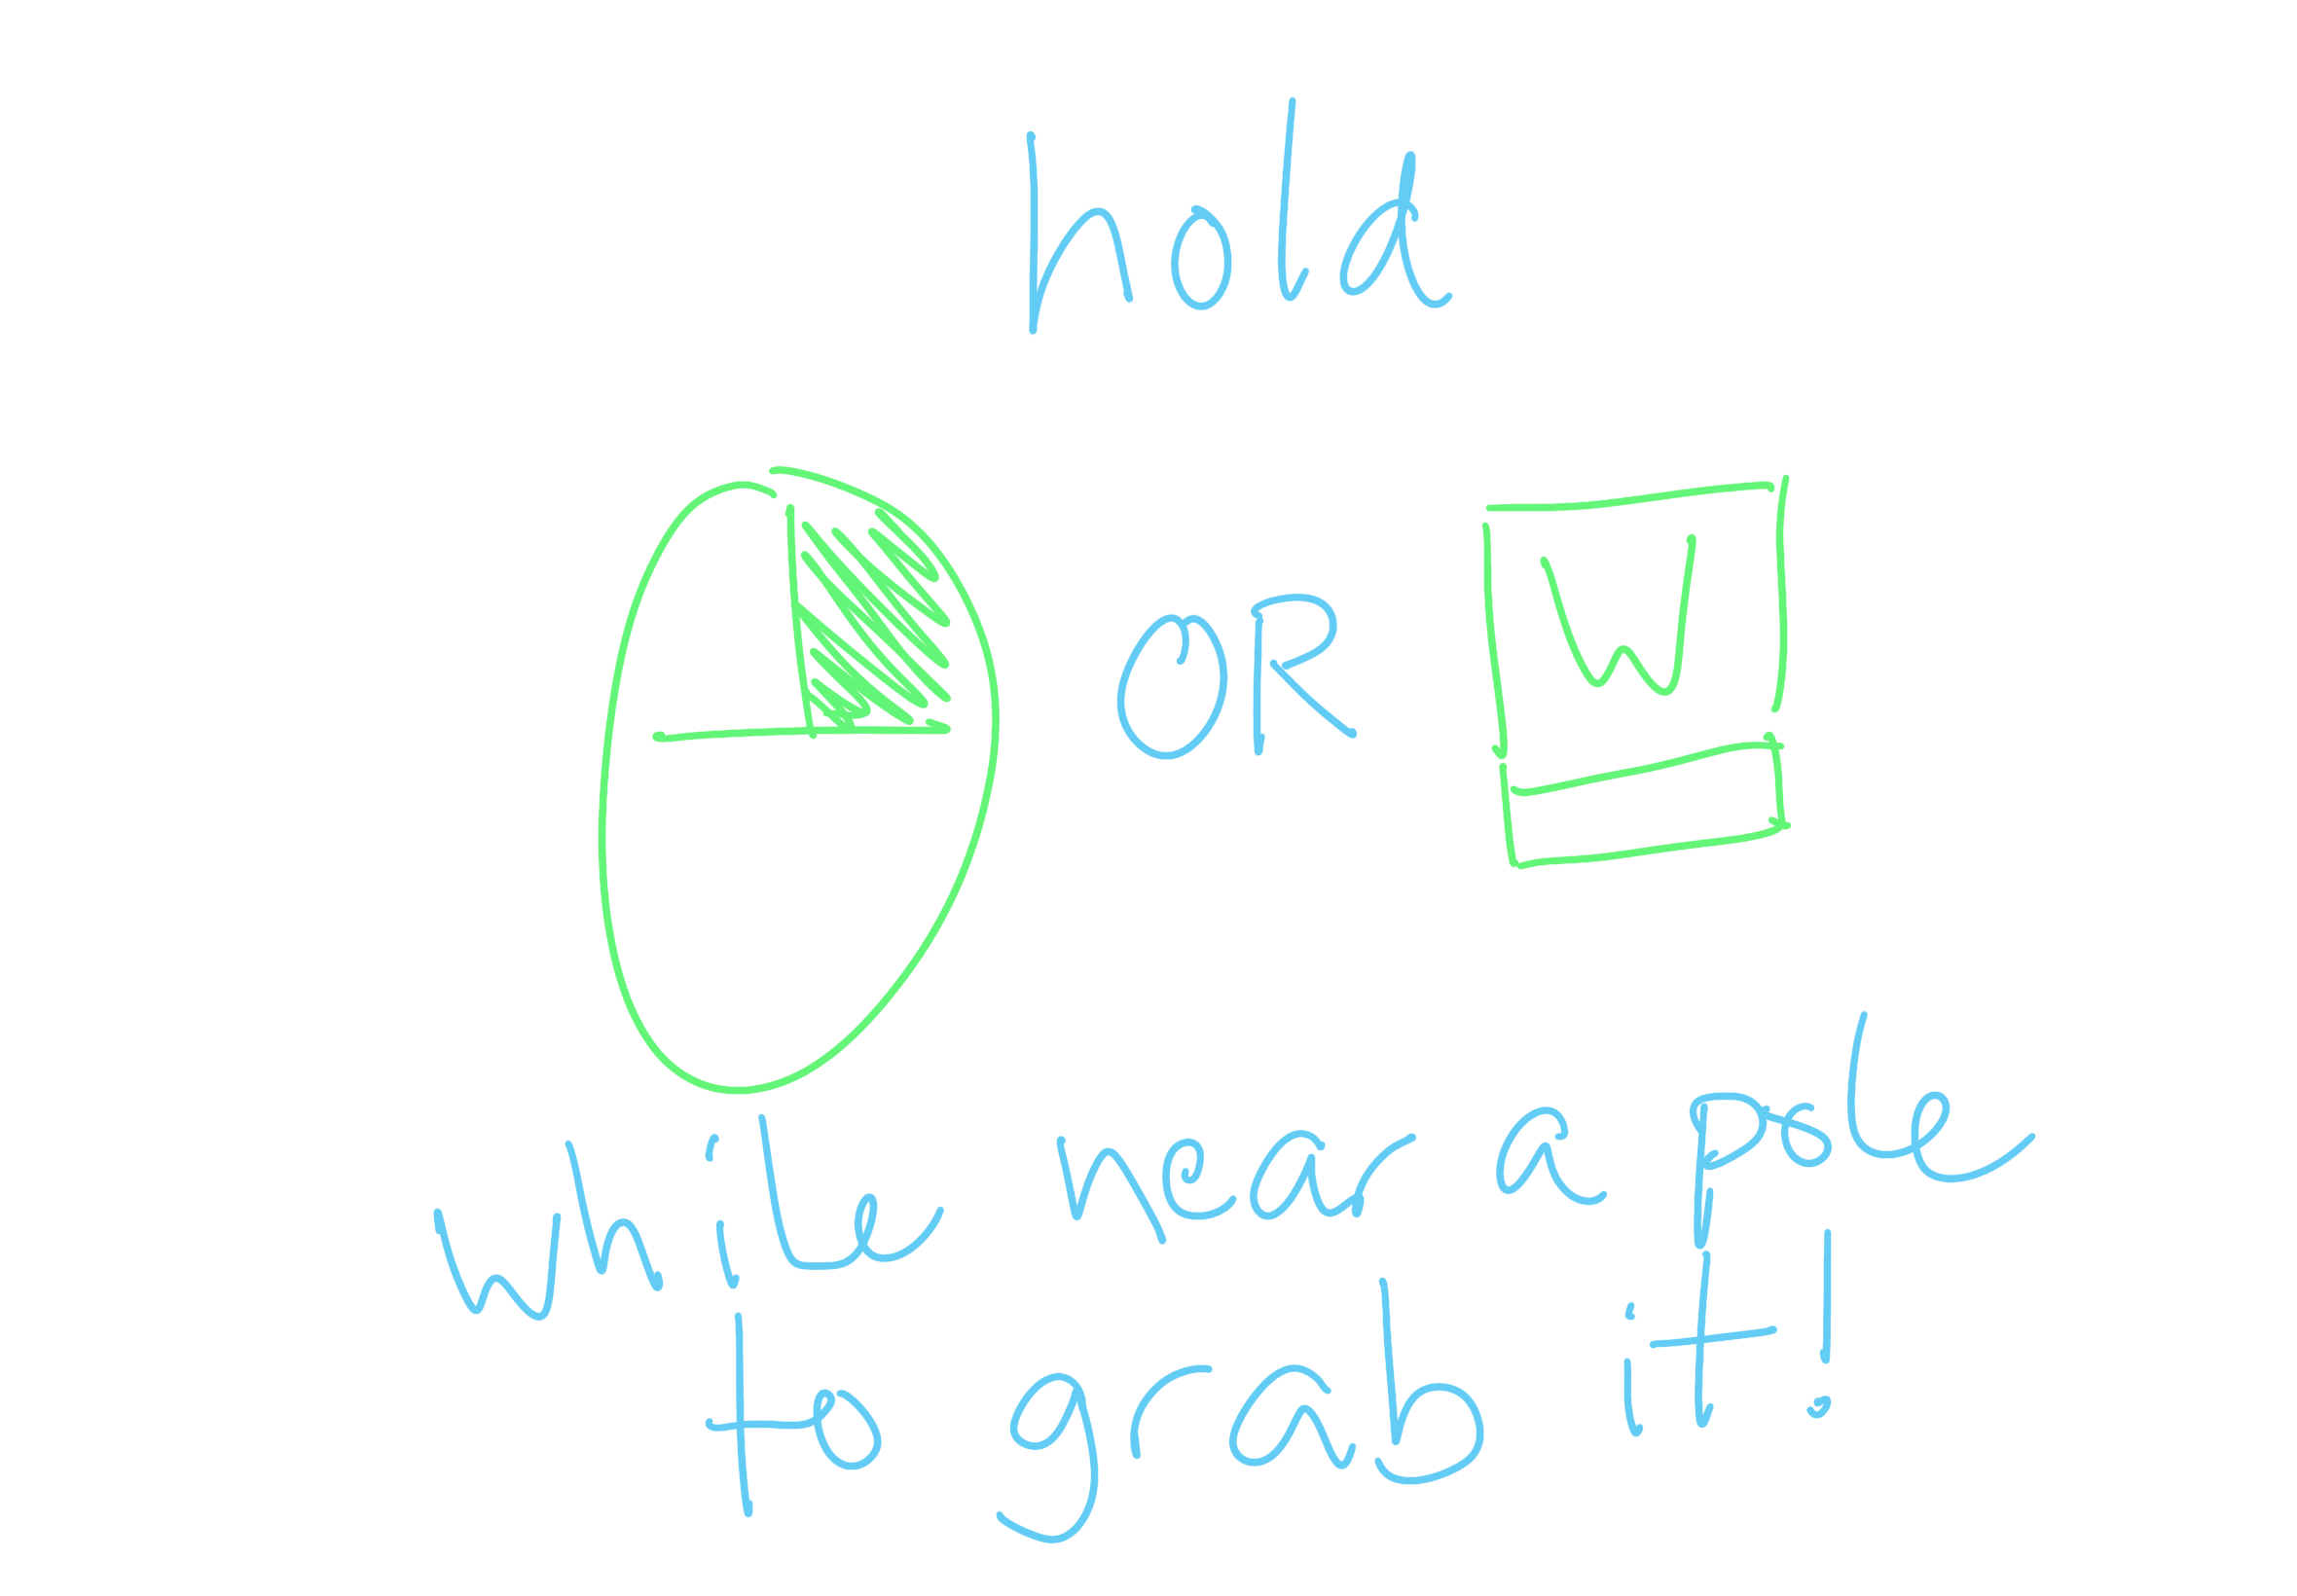 hold
OR W
while near a pole
to grab it!